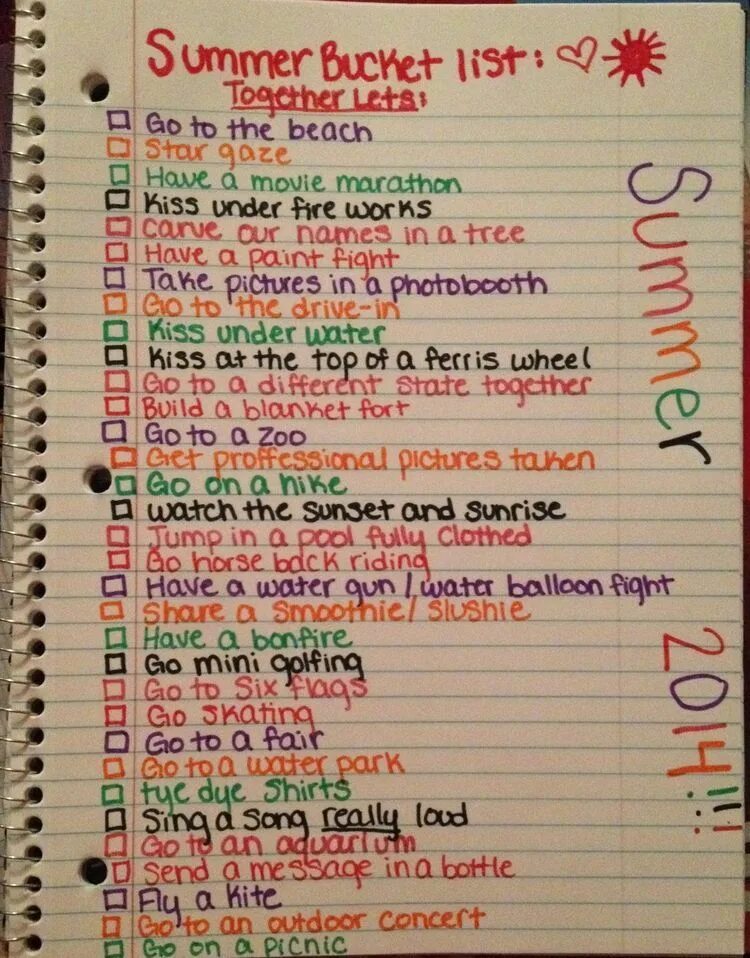 Summer Bucket list:
Together Lets:
Go to the beach
Star gaze
Have a movie marathon
Kiss under fire works
Carve our names in a tree
Have a paint fight
Take pictures in a photobooth
Go to the drive-in
Kiss under water
Kiss at the top of a ferris wheel
Go to a different state together
Build a blanket fort
Go to a zoo
Get proffessional pictures taken
Go on a hike
watch the sunset and sunrise
Jump in a pool fully clothed
Go horse back riding
Have a water gun / water balloon fight
Share a smoothie/ slushie
Have a bonfire
Go mini golfing
Go to Six flags
Go skating
Go to a fair
Go to a water park
tye dye shirts
Sing a song really loud
Go to an aquarium
Send a message in a bottle
Fly a kite
Go to an outdoor concert
Go on a picnic
Summer
2014!!!